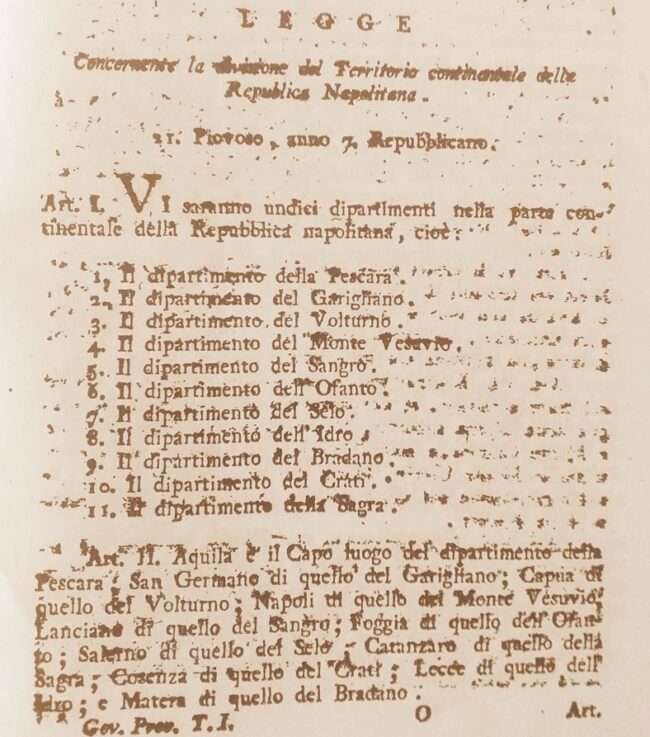 LEGGE
Concernente la divisione del Territorio continentale della
Republica Napolitana.
21. Piovoso, anno 7. Repubblicano.
Art. I. VI saranno undici dipartimenti nella parte con-
tinentale della Repubblica napolitana, cioè:
1. Il dipartimento della Pescara.
2. Il dipartimento del Garigliano.
3. Il dipartimento del Volturno.
4. Il dipartimento del Monte Vesuvio.
5. Il dipartimento del Sangro.
6. Il dipartimento dell'Ofanto.
7. Il dipartimento del Selo.
8. Il dipartimento dell'Idro.
9. Il dipartimento del Bradano.
10. Il dipartimento del Crati.
11. Il dipartimento della Sagra.
Art. II. Aquila è il Capo luogo del dipartimento della
Pescara; San Germano di quello del Garigliano; Capua di
quello del Volturno; Napoli di quello del Monte Vesuvio;
Lanciano di quello del Sangro; Foggia di quello dell'Ofan-
to; Salerno di quello del Selo; Catanzaro di quello della
Sagra; Cosenza di quello del Crati; Lecce di quello dell'
Idro; e Matera di quello del Bradano.
Gov. Prov. T. I. O Art.